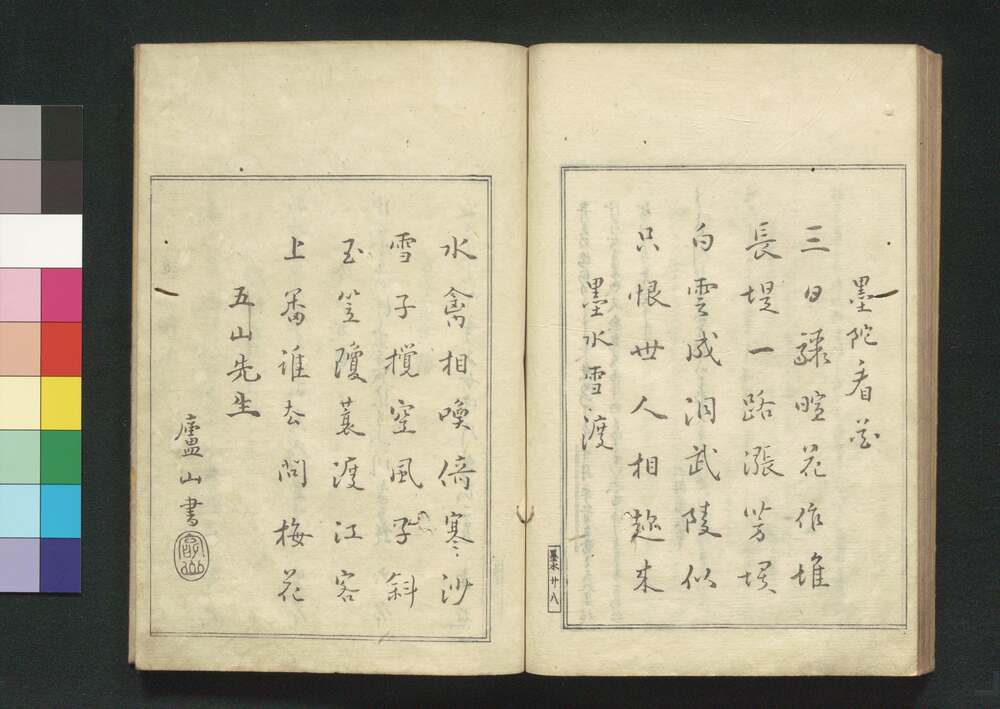 墨陀看花
三日驟暄花作堆
長堤一路漲芳埃
白雲成洞武陵似
只恨世人相趂来
墨水雪渡
墨水 廿八
水禽相喚倚寒沙
雪子撹空風子斜
玉笠瓊蓑渡江客
上番誰去問梅花
五山先生
廬山書